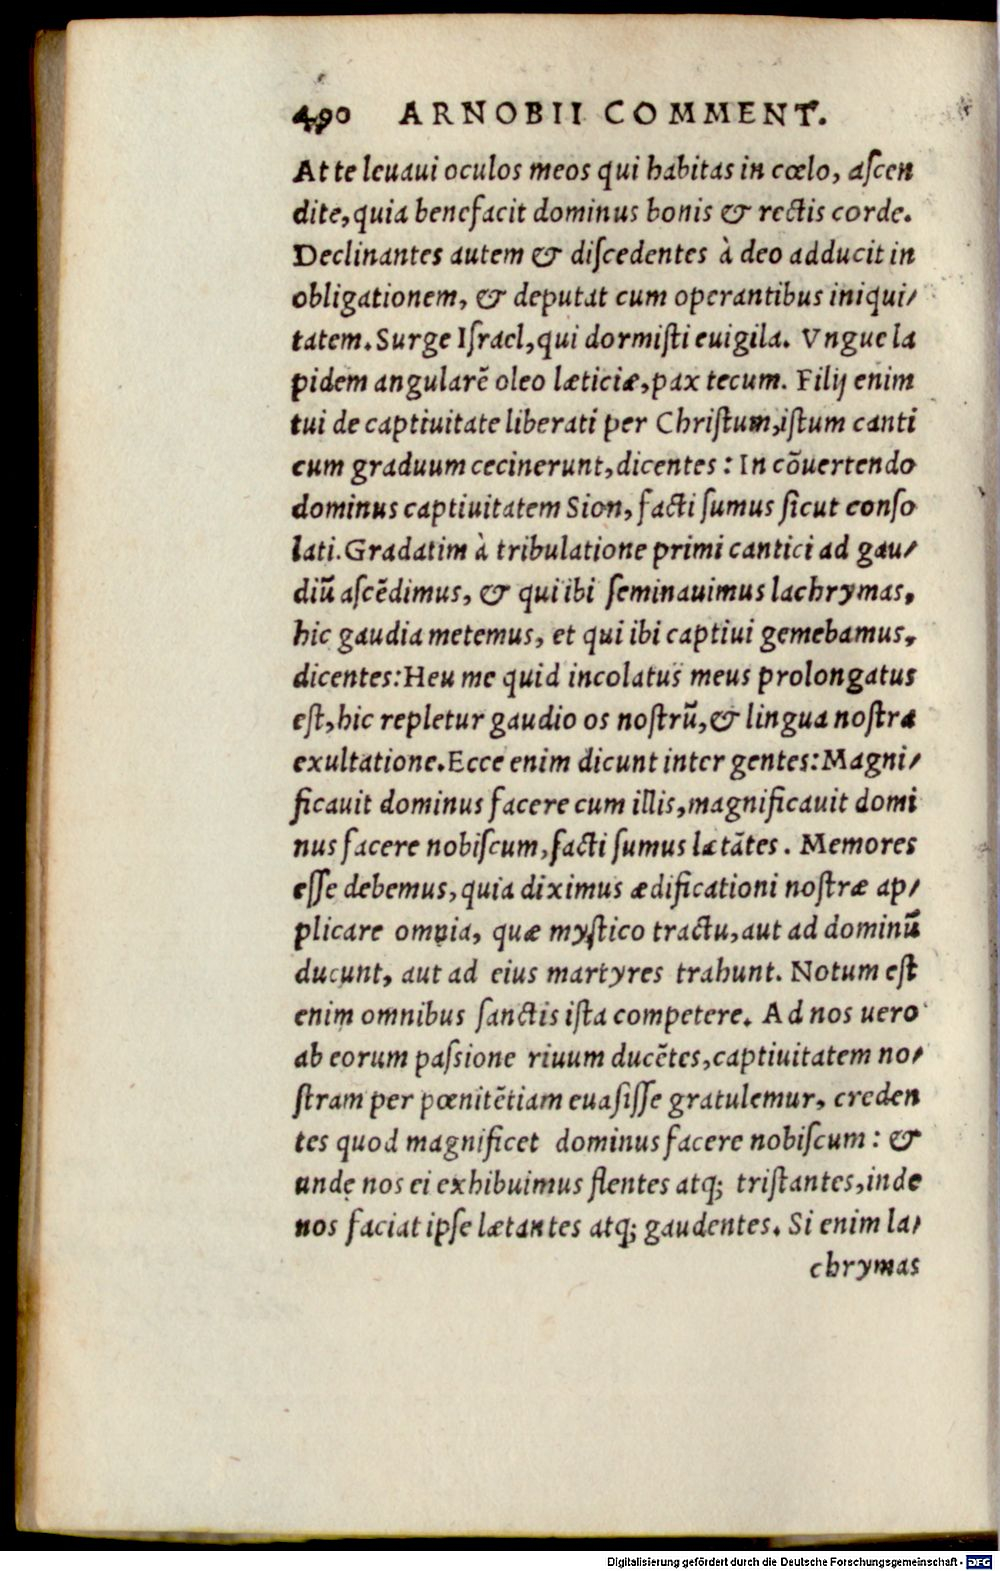 490 ARNOBII COMMENT.
At te leuaui oculos meos qui habitas in cœlo, aſcen
dite, quia benefacit dominus bonis & rectis corde.
Declinantes autem & diſcedentes à deo adducit in
obligationem, & deputat cum operantibus iniqui/
tatem. Surge Iſrael, qui dormiſti euigila. Vngue la
pidem angularē oleo læticiæ, pax tecum. Filij enim
tui de captiuitate liberati per Chriſtum, iſtum canti
cum graduum cecinerunt, dicentes: In cōuertendo
dominus captiuitatem Sion, facti ſumus ſicut conſo
lati. Gradatim à tribulatione primi cantici ad gau/
diū aſcēdimus, & qui ibi ſeminauimus lachrymas,
hic gaudia metemus, et qui ibi captiui gemebamus,
dicentes: Heu me quid incolatus meus prolongatus
eſt, hic repletur gaudio os noſtrū, & lingua noſtra
exultatione. Ecce enim dicunt inter gentes: Magni/
ficauit dominus facere cum illis, magnificauit domi
nus facere nobiſcum, facti ſumus lætātes. Memores
eſſe debemus, quia diximus ædificationi noſtræ ap/
plicare omnia, quæ myſtico tractu, aut ad dominū
ducunt, aut ad eius martyres trahunt. Notum eſt
enim omnibus ſanctis iſta competere. Ad nos uero
ab eorum paſsione riuum ducētes, captiuitatem no/
ſtram per pœnitētiam euaſiſſe gratulemur, creden
tes quod magnificet dominus facere nobiſcum: &
unde nos ei exhibuimus flentes atq; triſtantes, inde
nos faciat ipſe lætantes atq; gaudentes. Si enim la/
chrymas
Digitalisierung gefördert durch die Deutsche Forschungsgemeinschaft - DFG